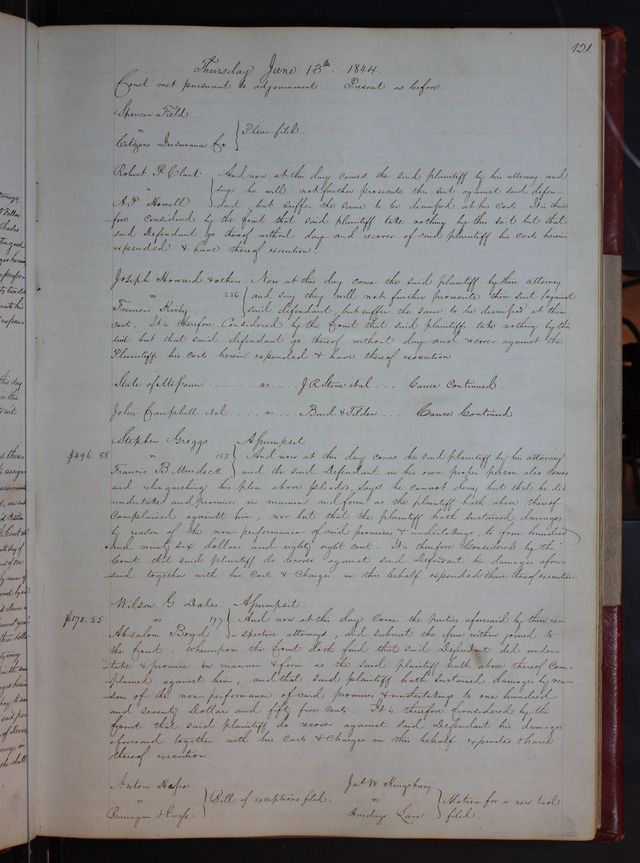 121
Thursday June 13th 1844
Court met pursuant to adjournment Present as before
Spencer Field
vs
Citizens Insurance Co } Pleas filed
Robert P. Clark And now at this day comes the said plaintiff by his attorney and
vs says he will not further prosecute this suit against said defen-
A. P. Howell dant, but suffer the same to be dismissed at his costs. It is there
fore considered by the Court that said plaintiff take nothing by his suit but that
said Defendant go thereof without day and recover of said plaintiff his costs herein
expended & have thereof execution.
Joseph Howard & others Now at this day come the said plaintiff by their attorney
vs 236 and say they will not further prosecute their suit against
Francis Kirby said defendant, but suffer the same to be dismissed at their
cost. It is therefore Considered by the Court that said plaintiffs take nothing by their
suit but that said defendant go thereof without day and recover against the
Plaintiffs his costs herein expended & have thereof execution
State of Missouri vs Cause Continued
John Campbell vs Bird & Tilden Cause Continued
Stephen Greggs Assumpsit
$496.88 vs 153 And now at this day comes the said plaintiff by his attorney
Francis B. Murdock and the said Defendant in his own proper person also comes
and relinquishing his plea above pleaded says he cannot deny but that he did
undertake and promise in manner and form as the plaintiff hath above thereof
Complained against him, nor but that the plaintiff hath sustained damages
by reason of the non performance of said promises & undertakings to four hundred
and ninety six dollars and eighty eight cents. It is therefore Considered by the
Court that said plaintiff do recover against said Defendant his damages afore-
said together with his Costs & Charges in this behalf expended & have thereof execution.
Wilson G Dales Assumpsit
$170.55 vs 77 And now at this day Come the parties aforesaid by their re-
Absalom Boyd spective attorneys, and submit the issue within joined to
the Court. Whereupon the Court doth find that said Defendant did under-
take & promise in manner & form as the said plaintiff hath above thereof Com-
plained against him, and that said plaintiff hath sustained damages by rea-
son of the non performance of said promises & undertakings to one hundred
and seventy Dollars and fifty five cents. It is therefore Considered by the
Court that said plaintiff do recover against said Defendant his damages
aforesaid together with his Costs & Charges in this behalf expended & have
thereof execution.
vs } Bill of exceptions filed.
Jas W Kingsbury
vs } Motion for a new trial
filed.